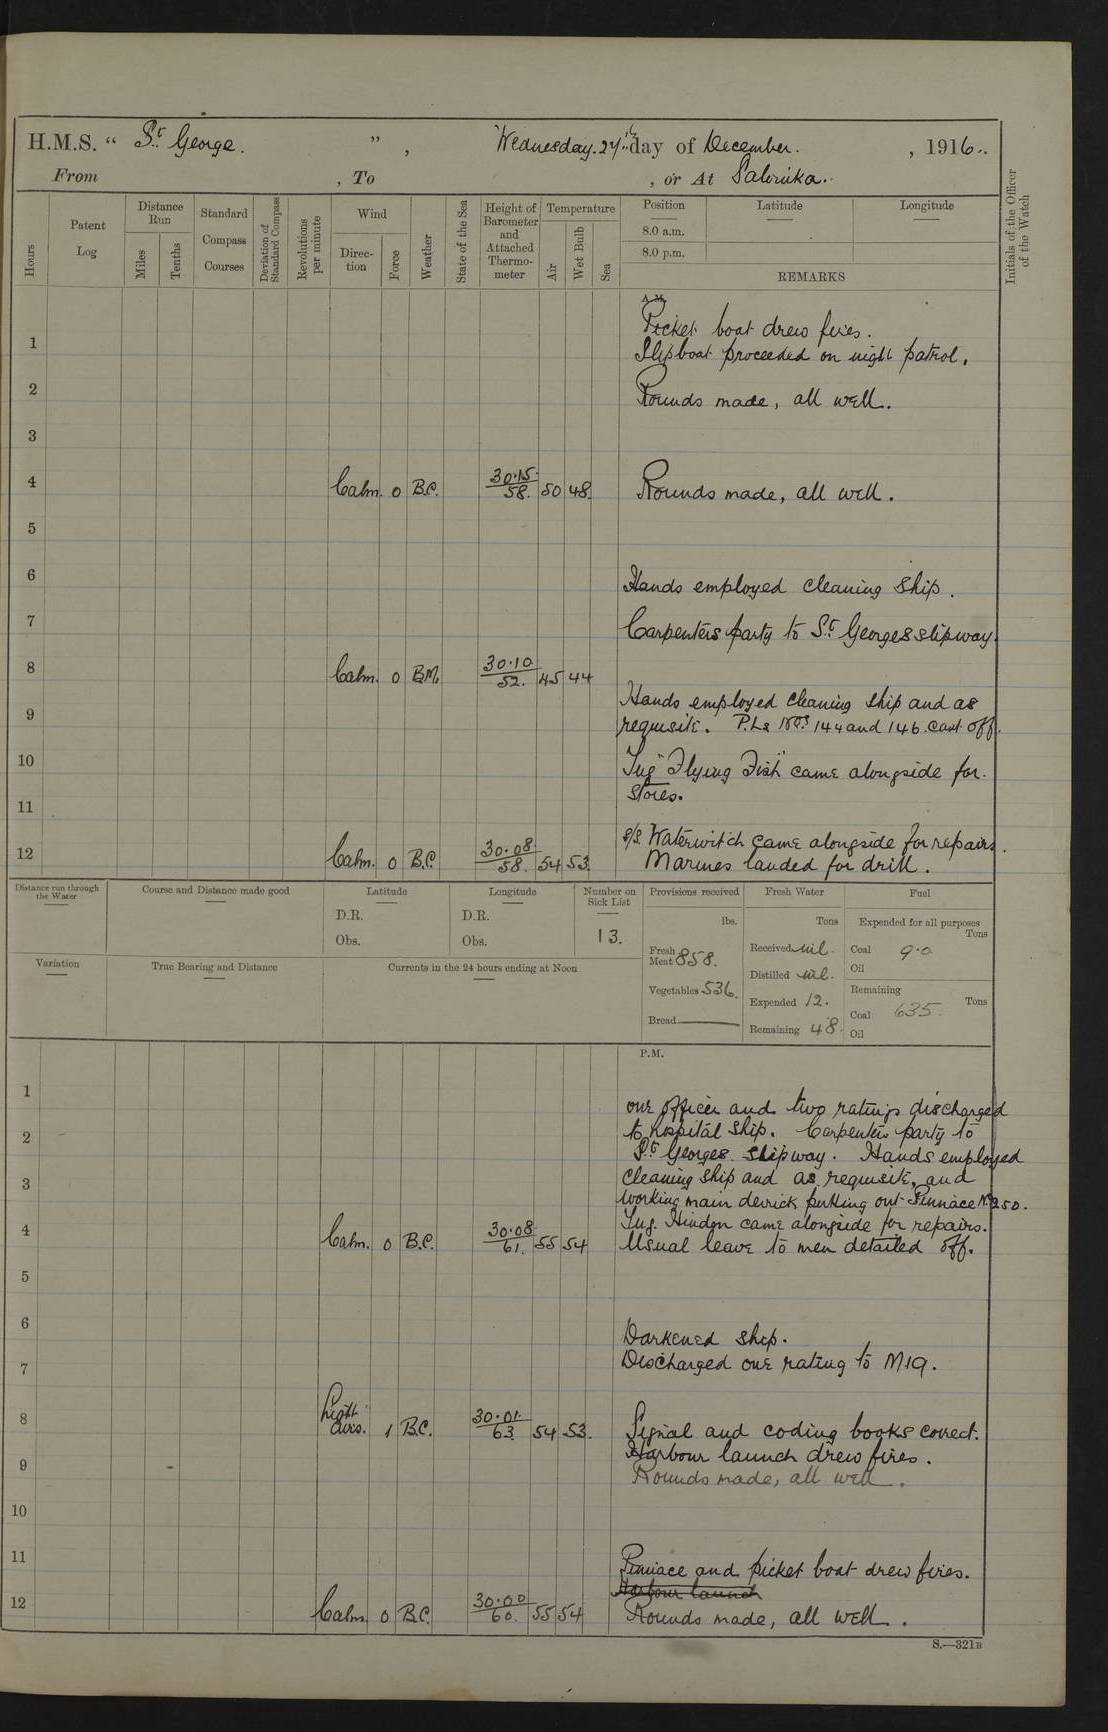 H.M.S. “ St. George. ” , Wednesday. 27th day of December. , 1916.
From , To , or At Salonika.
Hours
Patent Log
Distance Run
Miles
Tenths
Standard Compass Courses
Deviation of Standard Compass
Revolutions per minute
Wind
Direction
Force
Weather
State of the Sea
Height of Barometer and Attached Thermometer
Temperature
Air
Wet Bulb
Sea
Position
8.0 a.m.
8.0 p.m.
Latitude
Longitude
REMARKS
Initials of the Officer of the Watch
A.M.
Picket boat drew fires.
1
Slipboat proceeded on night patrol.
2
Rounds made, all well.
3
4 Calm. 0 B.C. 30.15 58. 50 48. Rounds made, all well.
5
6
Hands employed cleaning ship.
7
Carpenters party to St. Georges slipway.
8 Calm. 0 B.M. 30.10 52. 45 44
Hands employed cleaning ship and as
9
requisite. P.Ls Nos 144 and 146 cast off.
10
Tug "Flying Fish" came alongside for
stores.
11
S/S. Waterwitch came alongside for repairs.
12 Calm. 0 B.C. 30.08 58. 54 53. Marines landed for drill.
Distance run through the Water
Course and Distance made good
Latitude
D.R.
Obs.
Longitude
D.R.
Obs.
Number on Sick List
13.
Provisions received
lbs.
Fresh Meat 858.
Vegetables 536.
Bread
Fresh Water
Tons
Received nil.
Distilled nil.
Expended 12.
Remaining 48.
Fuel
Expended for all purposes
Tons
Coal 9.0
Oil
Remaining
Tons
Coal 635.
Oil
Variation
True Bearing and Distance
Currents in the 24 hours ending at Noon
P.M.
1
one officer and two ratings discharged
2
to hospital ship. Carpenters party to
St. Georges slipway. Hands employed
3
cleaning ship and as requisite, and
working main derrick putting out Pinnace No 250.
Tug. Hindon came alongside for repairs.
4 Calm. 0 B.C. 30.08 61. 55 54 Usual leave to men detailed off.
5
6
Darkened ship.
7
Discharged one rating to M19.
8 Light airs. 1 B.C. 30.01. 63. 54 53. Signal and coding books correct.
Harbour launch drew fires.
9
Rounds made, all well.
10
11
Pinnace and picket boat drew fires.
Harbour launch
12 Calm. 0 B.C. 30.00 60. 55 54 Rounds made, all well.
S.—321B